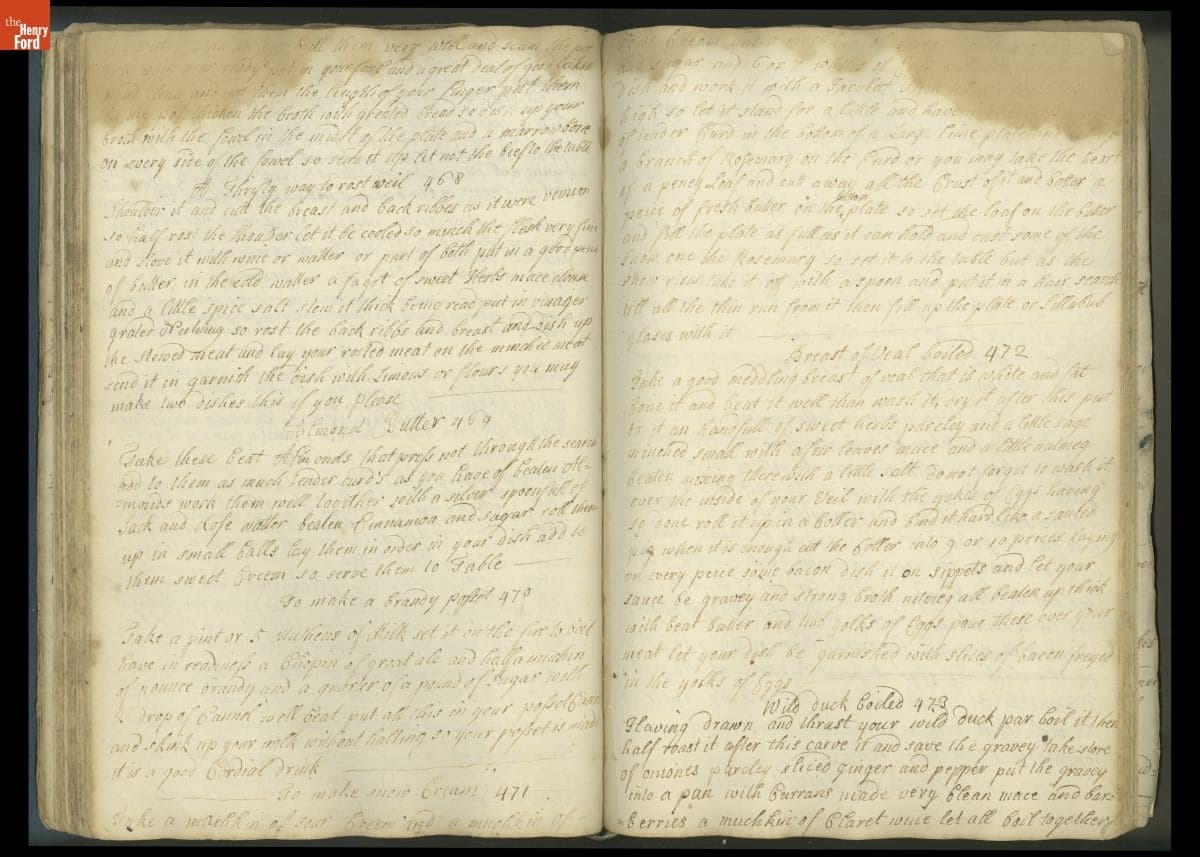 the
Henry
Ford
them very well and scum the pot
ready put in your fowl and a great deal of good
and cutt them the length of your finger putt them
in the pot thicken the broth with greated bread so dish up your
broth with the fowl in the midst of the plate and a marrow bone
on every side of the fowel so send it up let not the beef to the table
A Thrifty way to rost veil 468
Shoulder it and cutt the breast and back ribbes as it were venison
so half rost the shoulder let it be cooled so minch the flesh very fine
and stove it with wine or watter or part of both put in a good peice
of butter in the cold watter a fagot of sweet Herbs mace clovse
and a little spice salt stew it thick being read put in vinager
grated Nutmug so rost the back ribbs and breast and dish up
the stewed meat and lay your rosted meat on the minched meat
send it in garnish the dish with Limons or flours you may
make two dishes this if you please
Almond Butter 469
Take these beat Almonds that press not through the search
add to them as much tender curds as you have of beaten Al-
monds work them well together with a silver spoonfull of
Sack and Rose watter beaten Cinnamon and sugar roll them
up in small balls lay them in order in your dish add to
them sweet Creem so serve them to Table
To make a brandy posset 470
Take a pint or 5 Muthens of Milk set it on the fire to boil
have in readiness a Chopin of great ale and half a muchkin
of nounce brandy and a quarter of a pound of Sugar with
drop of Cannel well beat put all this in your posset Cann
and skink up your milk without halting so your posset is made
it is a good Cordial drink
To make snow Cream 471
Take a muchkin of sour Creem and a muchkin of
and sugar and 6 or 7 whites of
dish and work it with a
high so let it stand for a little and have
of tender Curd in the bottom of a Large plate and
a branch of Rosemary on the Curd or you may take the heart
of a peney Loaf and cutt away all the Crust of it and botter a
peice of fresh butter on the bottom plate so set the loaf on the butter
and fill the plate as full as it can hold and cast some of the
snow one the Rosemary so set it to the table but as the
snow rises take it off with a spoon and put it in a hair search
till all the thin run from it then fill up the plate or Sillabub
glases with it
Breast of Veal boiled 472
Take a good meddling breast of veal that is white and fat
bone it and beat it well than wash it, dry it after this put
to it an handfull of sweet herbs parcley and a little sage
minched small with a few leaves mace and a little nutmeg
beaten mixing there with a little salt do not forget to wash it
over the inside of your Veil with the yokes of Eggs having
so done roll it up in a Coller and bind it hard like a sauted
pig when it is enough cut the Coller into 9 or 10 peices laying
on every peice some bacon dish it on sippets and let your
sauce be gravey and strong broth nutmeg all beaten up thick
with beat butter and two yolks of Eggs pour these over your
meat let your dish be garnished with slices of bacon freyed
in the yorks of Eggs
Wild duck boiled 473
Having drawn and thrust your wild duck par boil it then
half roast it after this carve it and save the gravey take store
of oniones parcley sliced ginger and pepper put the gravey
into a pan with Currans made very Clean mace and bar-
berries a muchkin of Claret wine let all boil together